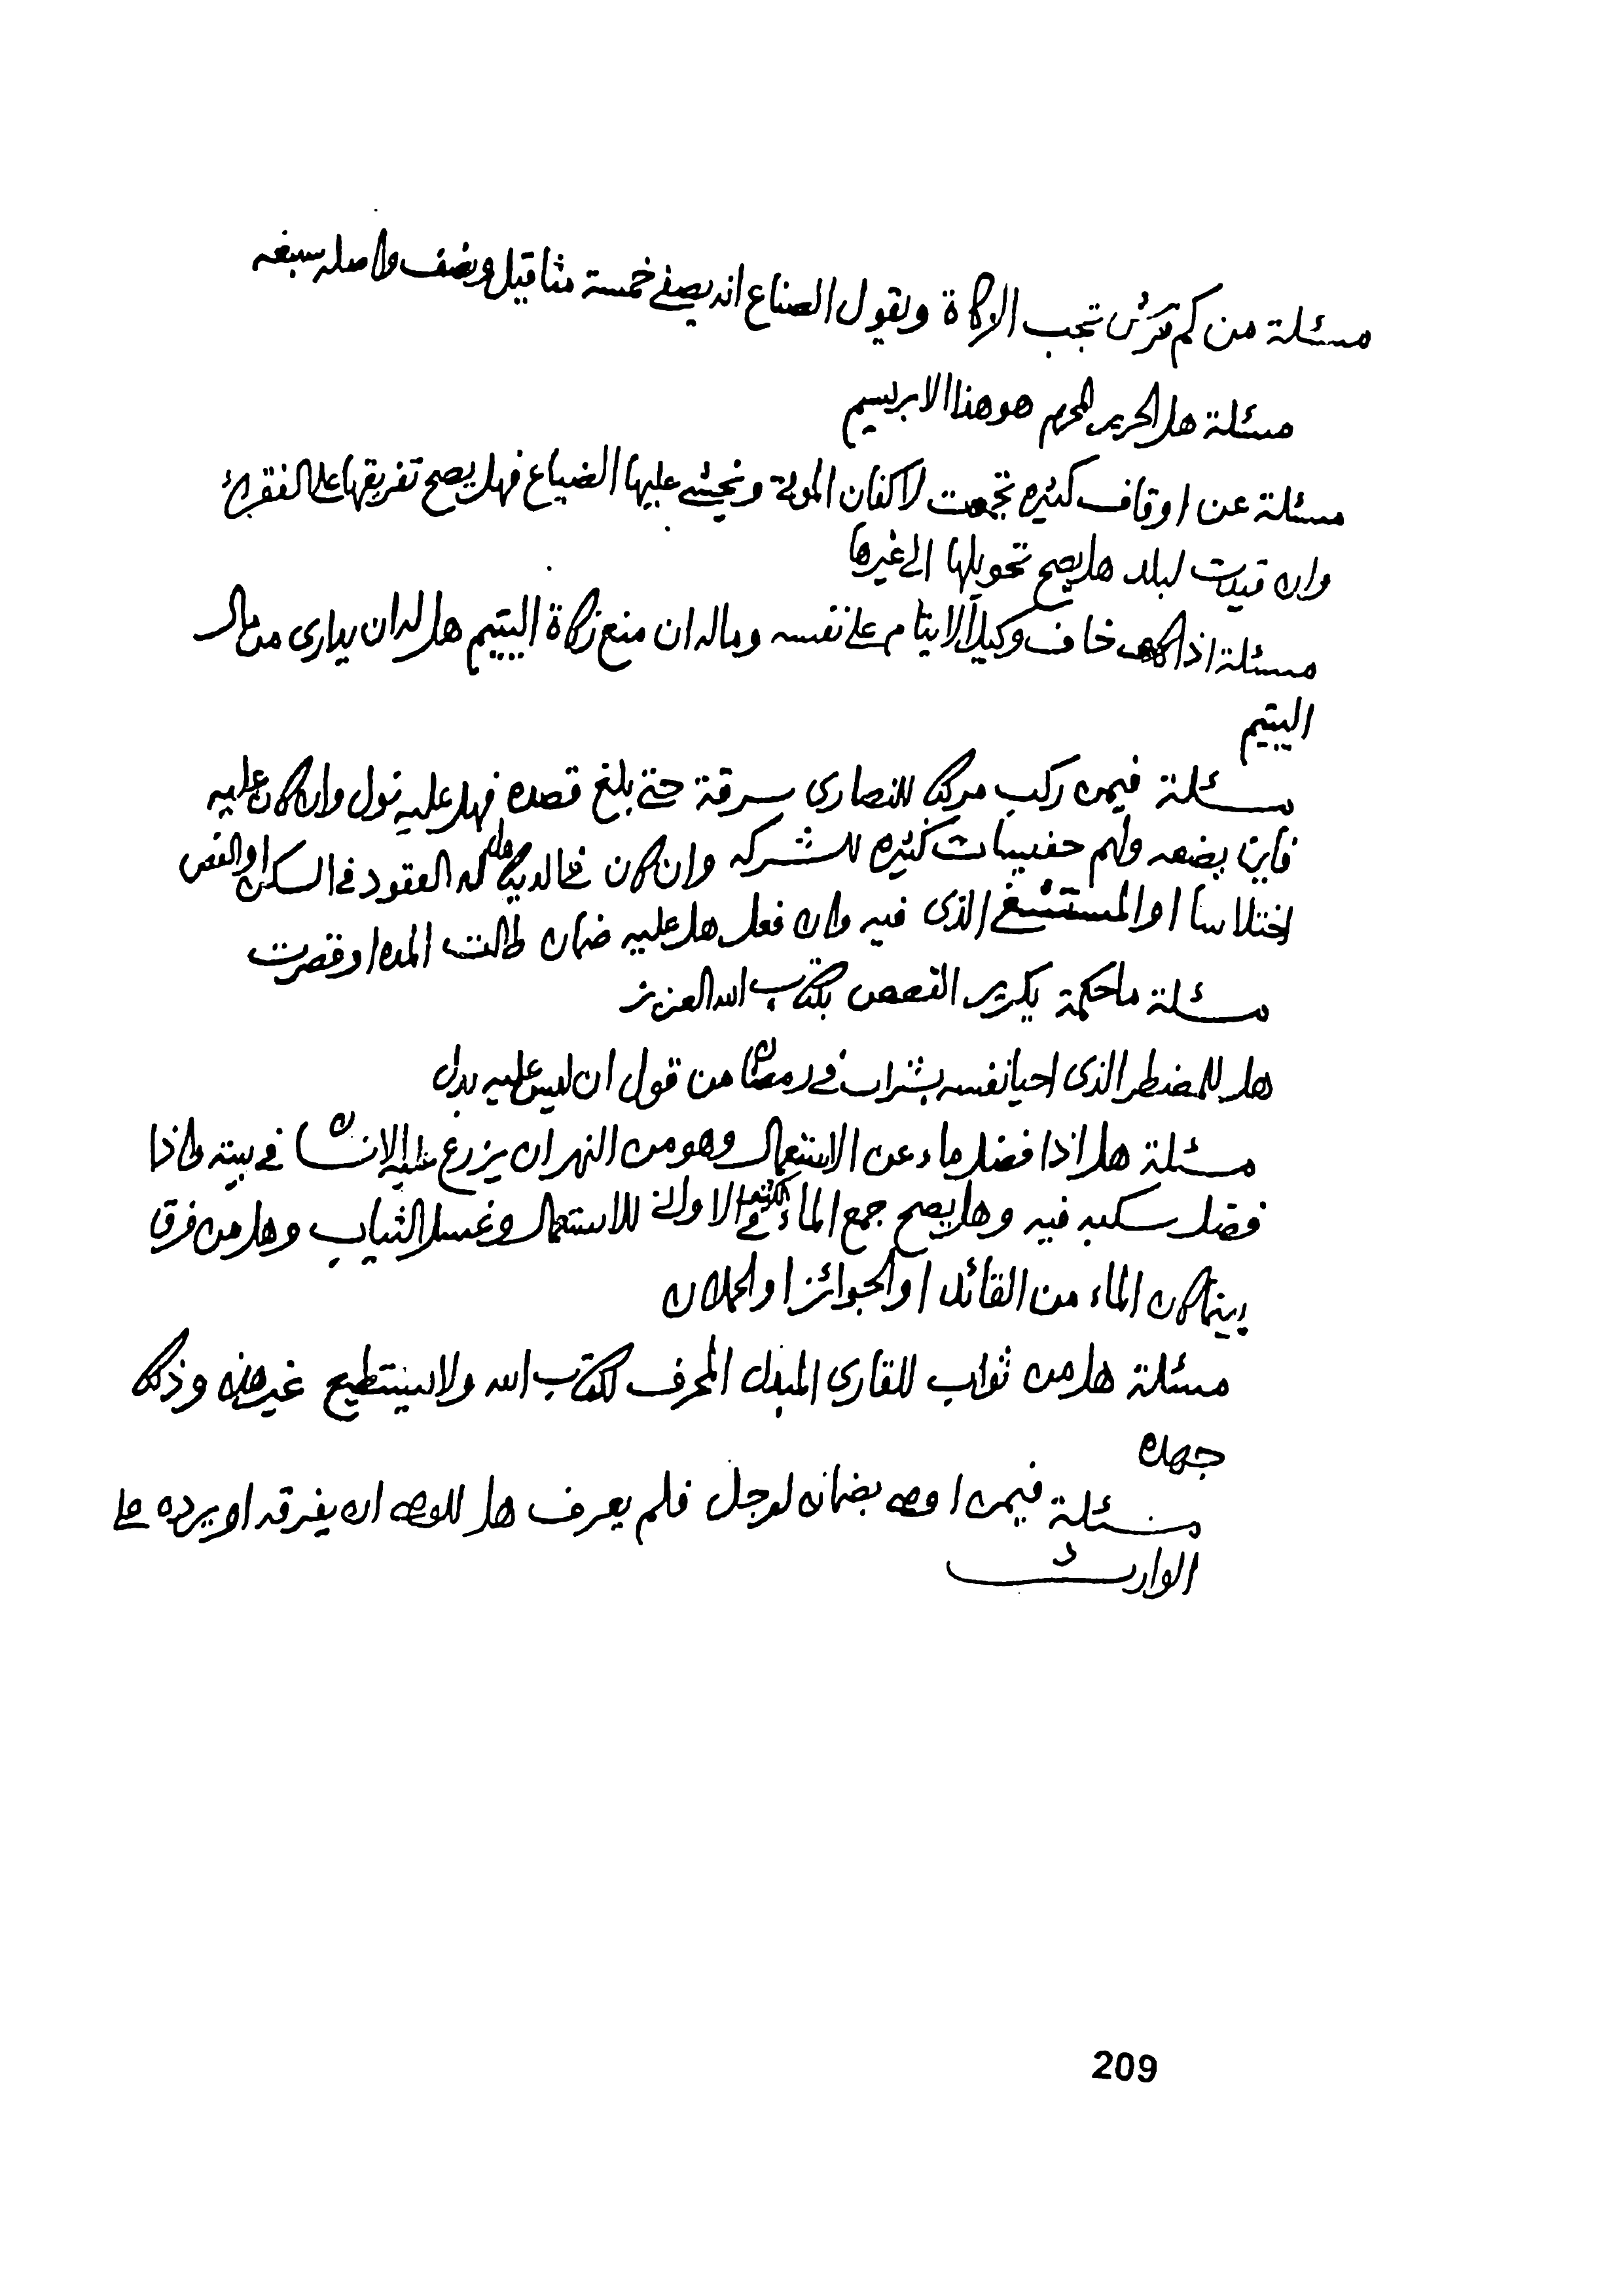 مسئلة من كم قرش تجب الزكاة ويقول الصناع انه يصفي خمسة مثاقيل ونصف واصله سبعه
مسئلة هل الحرير المحرم هو هذا الابريسم
مسئلة عن اوقاف كثيره تجمعت لاكفان الموتى ونخشى عليها الضياع فهل يصح تفريقها على الفقراء
وان قيدت لبلد هل يصح تحويلها الى غيرها
مسئلة اذا خاف وكيل الايتام على نفسه وماله ان منع زكاة اليتيم هل له ان يدارى من مال
اليتيم
مسئلة فيمن ركب مركبا للنصارى سرقة حتى بلغ قصده فهل عليه نول وان كان عليه
فاين يضعه ولهم كثيره للشركه وان كان له العقود في السكن او القص
اختلاسا او المستشفى الذى فيه وان فعل هل عليه ضمان طالت المده او قصرت
مسئلة ما حكمة تكرير القصص بكتاب الله العزيز
هل للمضطر الذى احيا نفسه بشراب في رمضان من قول ان ليس عليه بدل
مسئلة هل اذا فضل ماء عن الاستعمال وهو من النهر ان يزرع عليه الانسان في بيته واذا
فضل سكبه فيه وهل يصح جمع الماء في الاوانى للاستعمال وغسل الثياب وهل من فرق
بينما كان الماء من القائد او الجوائز او الحملان
مسئلة هل من ثواب للقارى المبدل المحرف لكتاب الله ولا يستطيع غير هذه وذلك
جهده
مسئلة فيمن اوصى بضمانه لرجل فلم يعرف هل للوصى ان يفرقه او يرده على
الوارث
209